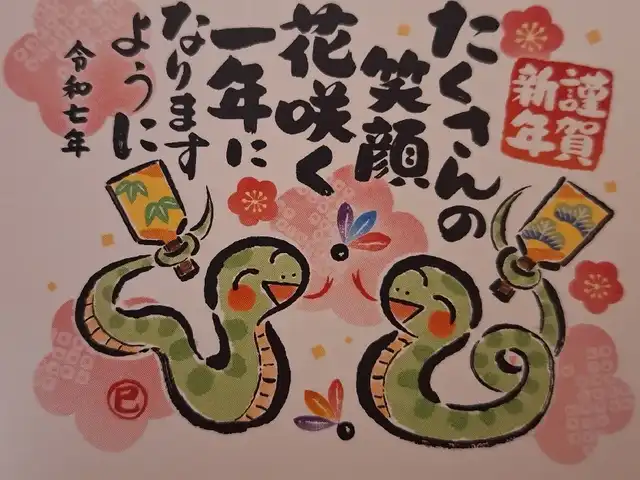 謹賀
新年
たくさんの
笑顔
花咲く
一年に
なります
ように
令和七年
巳